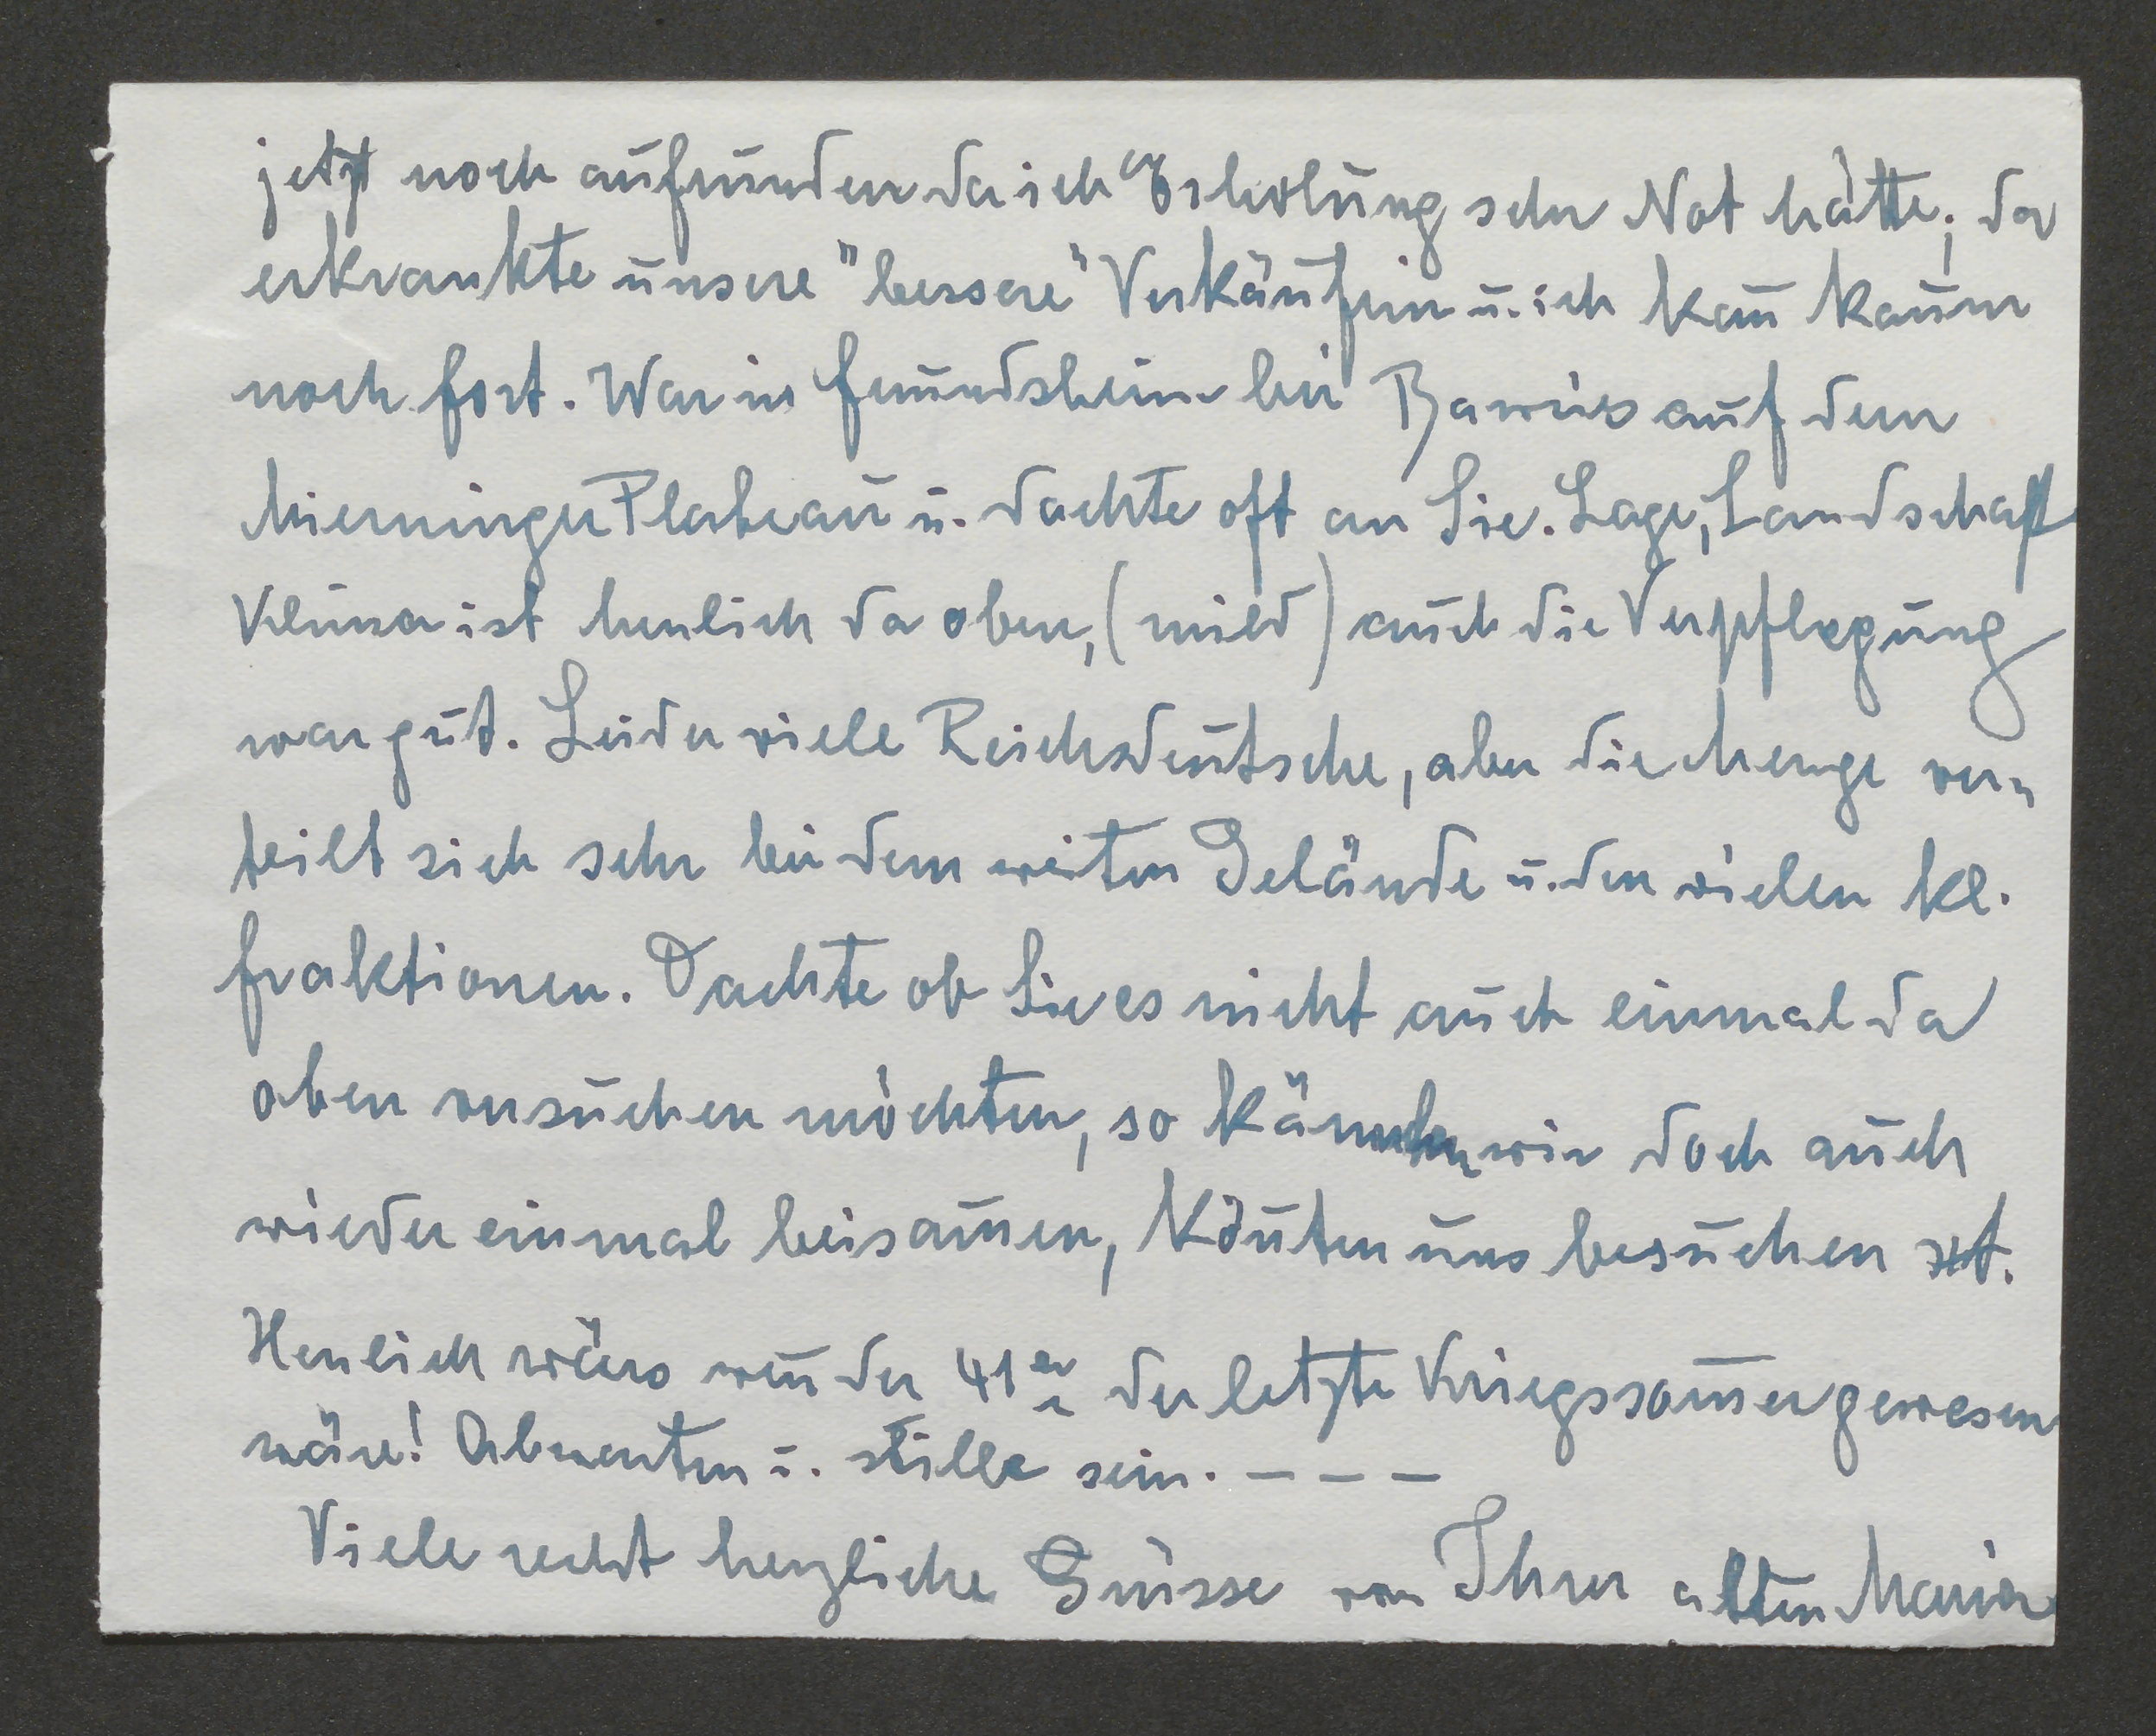 jetzt noch aufmunden da ich Erholung sehr Not hätte; da
erkrankte unsere "bessere" Verkäuferin u. ich kam̅ kaum
noch fort. War in Freundsheim bei Barwies auf dem
Mieminger Plateau u. dachte oft an Sie. Lage, Landschaft
Klima ist herrlich da oben, (mild) auch die Verpflegung
war gut. Leider viele Reichsdeutsche, aber die Menge ver=
teilt sich sehr bei dem weiten Gelände u. den vielen kl.
Fraktionen. Dachte ob Sie es nicht auch einmal da
oben versuchen möchten, so kämen wir doch auch
wieder einmal beisam̅en, kön̅ten uns besuchen etc.
Herrlich wärs wen̅ der 41er der letzte Kriegssom̅er gewesen
wäre! Abwarten u. stille sein. — — —
Viele recht herzliche Grüsse von Ihrer alten Maria